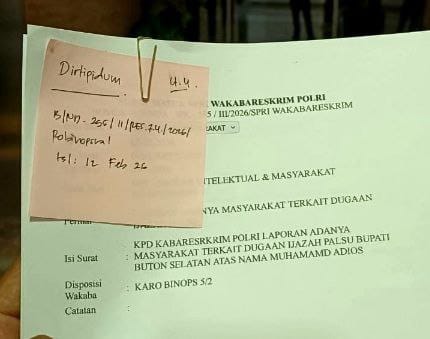 Dirtipidum
4.4.
B/ND-256/II/RES.7.4/2026/
Robinopsnal
tgl: 12 Feb 26
WAKABARESKRIM POLRI
5 / III/2026/SPRI WAKABARESKRIM
RAKAT
NTELEKTUAL & MASYARAKAT
NYA MASYARAKAT TERKAIT DUGAAN
Isi Surat : KPD KABARESRKRIM POLRI LAPORAN ADANYA
MASYARAKAT TERKAIT DUGAAN IJAZAH PALSU BUPATI
BUTON SELATAN ATAS NAMA MUHAMAMD ADIOS
Disposisi
Wakaba : KARO BINOPS 5/2
Catatan :